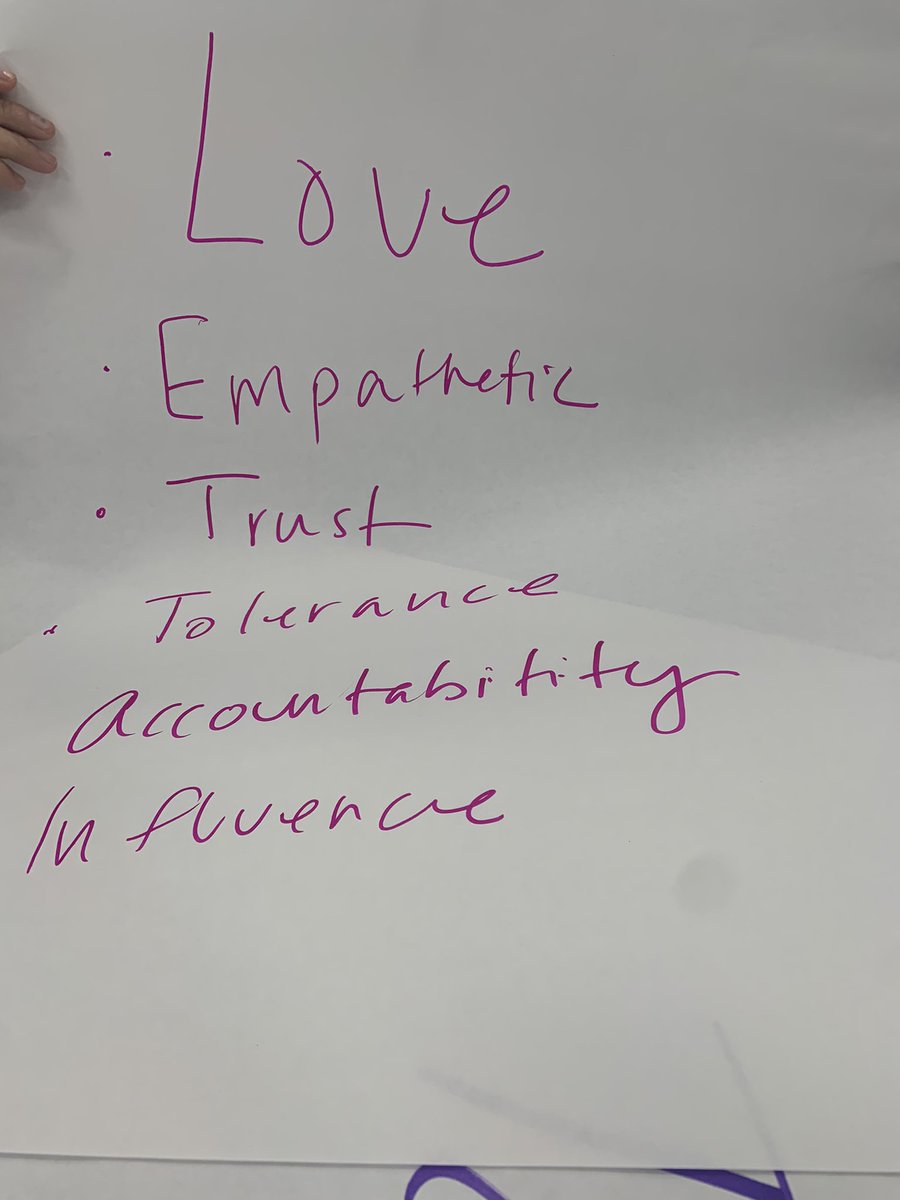 · Love
· Empathetic
· Trust
· Tolerance
Accountability
Influence